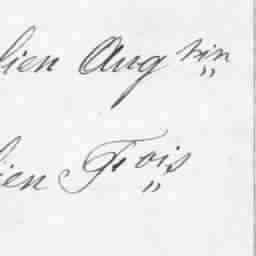 lien Aug tin
ien Fr ois